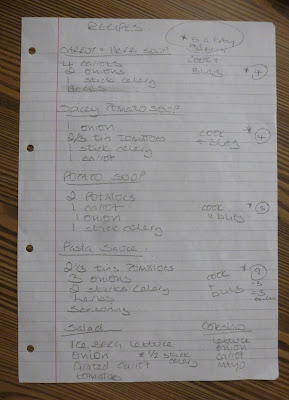 RECIPES
CARROT & HERB SOUP
4 CARROTS
2 ONIONS
1 STICK CELERY
HERBS
COOK +
BLITZ * 4
SPICEY POTATO SOUP
1 ONION
2/3 TIN TOMATOES
1 STICK CELERY
1 CARROT
COOK
+ BLITZ * 4
POTATO SOUP
2 POTATOES
1 CARROT
1 ONION
1 STICK CELERY
COOK
+ BLITZ * 5
Pasta Sauce
2/3 tins TOMATOES
3 ONIONS
2 sticks Celery
herbs
Seasoning
COOK
+
BLITZ * 9
Salad
Ice Berg Lettuce
ONION * 1/2 stick
celery
Grated Carrot
tomatoes
Coleslaw
lettuce
ONION
carrot
MAYO